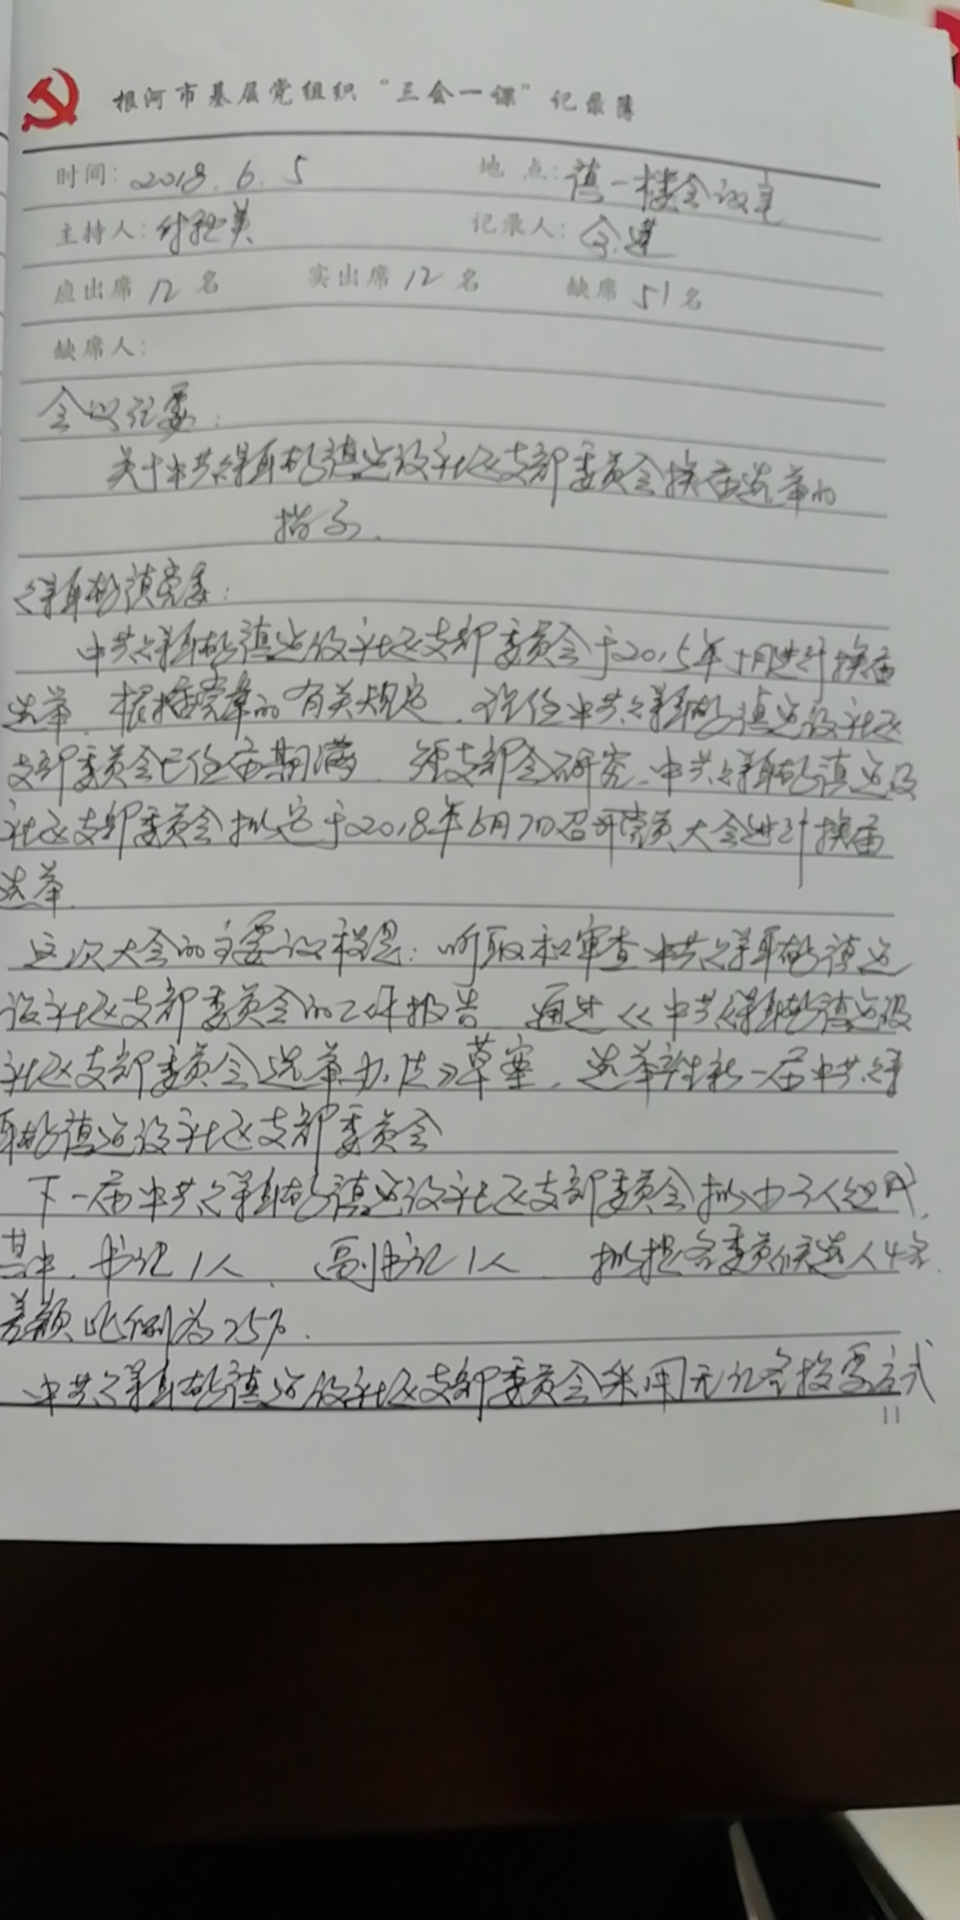 根河市基层党组织“三会一课”记录薄
时间：2018.6.5 地点：镇一楼会议室
主持人： 记录人：
应出席12名 实出席12名 缺席51名
缺席人：
会议记要：
关于中共得耳布尔镇建设社区支部委员会换届选举的
指示.
得耳布尔镇党委：
中共得耳布尔镇建设社区支部委员会于2015年十月进行换届
选举. 根据党章的有关规定. 现任中共得耳布尔镇建设社区
支部委员会已任届期满. 经支部会研究. 中共得耳布尔镇建设
社区支部委员会拟定于2018年6月7日召开党员大会进行换届
选举.
这次大会的主要议程是：听取和审查中共得耳布尔镇建
设社区支部委员会的工作报告 通过《中共得耳布尔镇建设
社区支部委员会选举办法》草案. 选举产生新一届中共得
耳布尔镇建设社区支部委员会
下一届中共得耳布尔镇建设社区支部委员会拟由3人组成.
其中. 书记1人. 副书记1人 拟提名委员候选人4名.
差额比例为25%.
中共得耳布尔镇建设社区支部委员会采用无记名投票方式
11